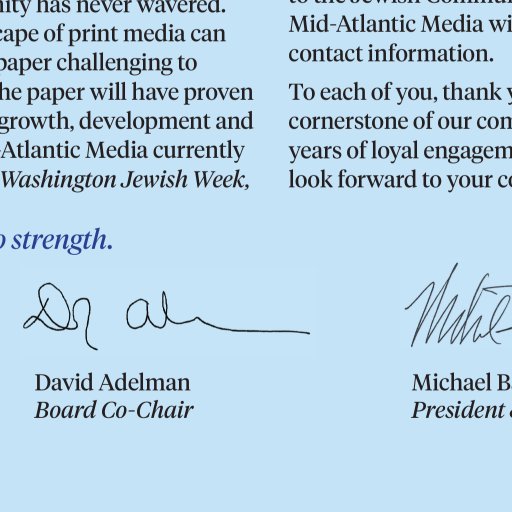 nity has never wavered.
cape of print media can
paper challenging to
he paper will have proven
growth, development and
-Atlantic Media currently
Washington Jewish Week,
to the Jewish Commun
Mid-Atlantic Media wi
contact information.
To each of you, thank y
cornerstone of our com
years of loyal engagem
look forward to your co
o strength.
David Adelman
Board Co-Chair
Michael B
President &